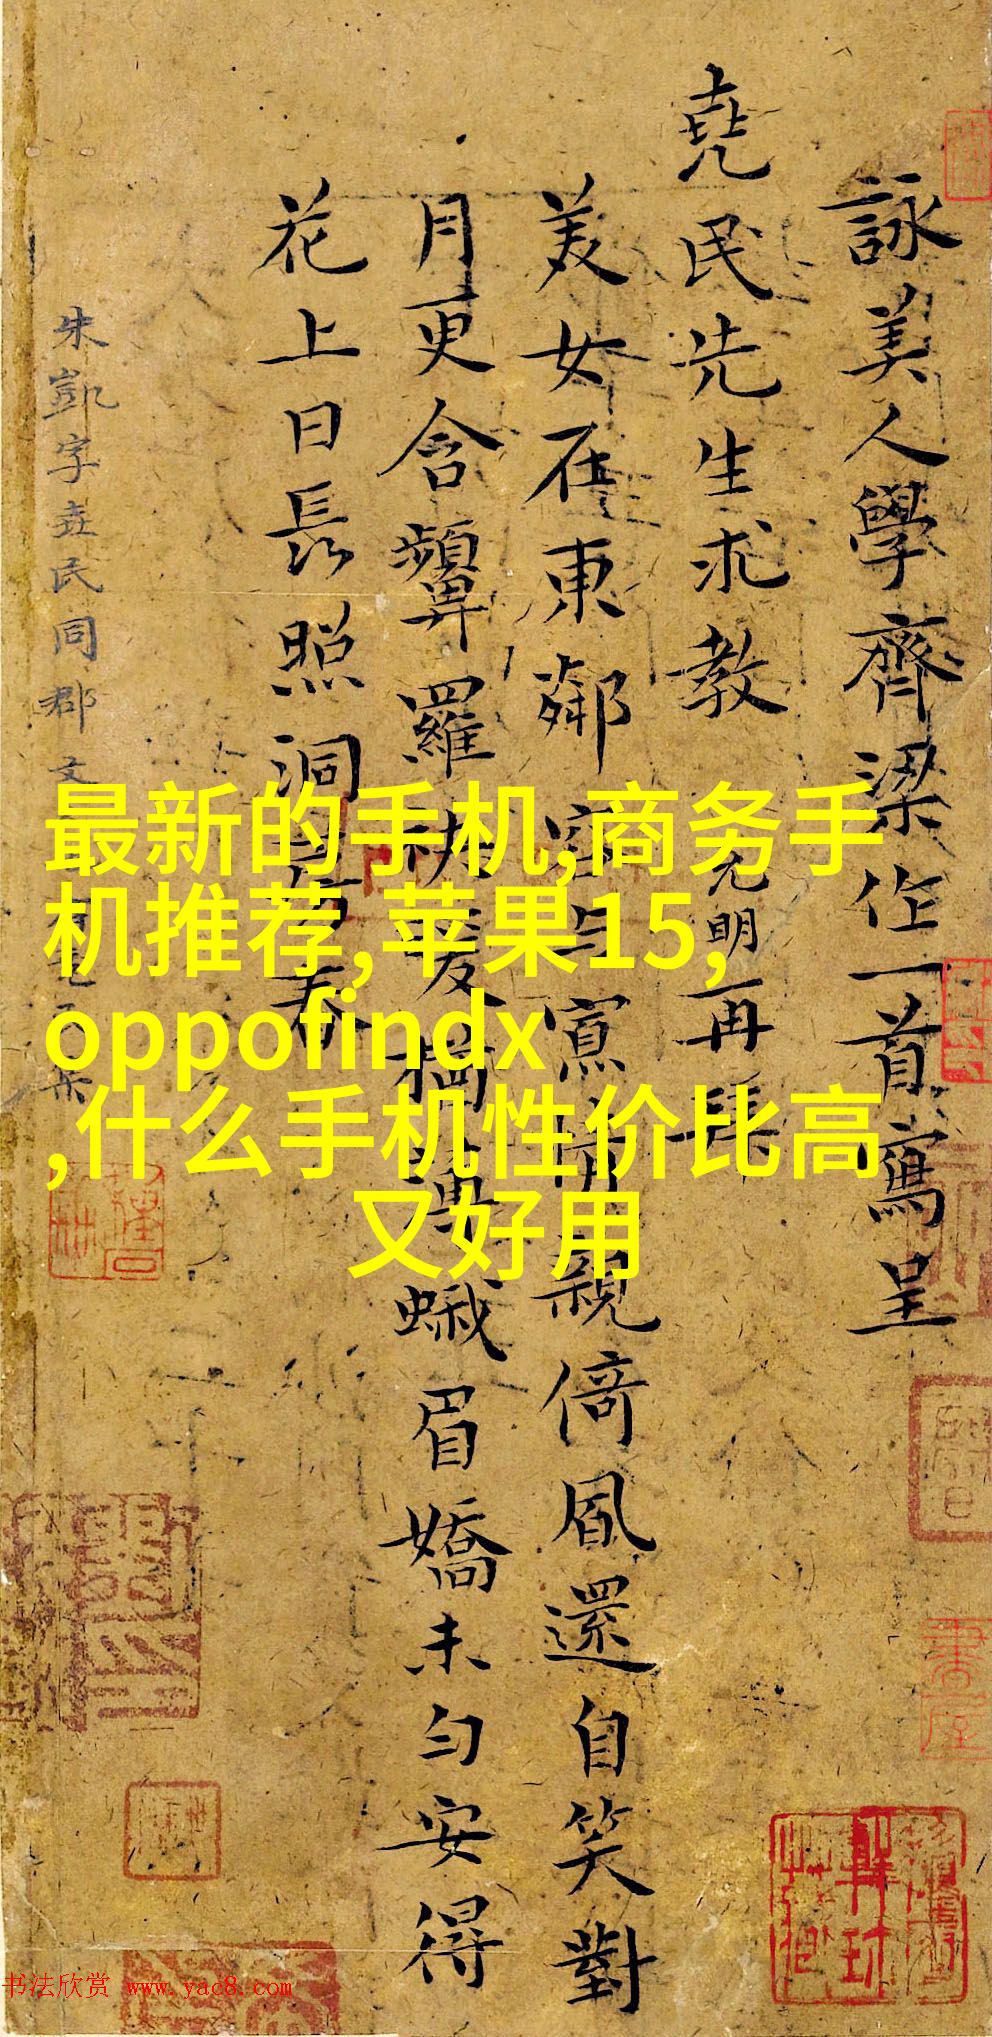 詠美人學齊梁作一首寫呈
堯民先生求教 克明再拜
美女在東鄰 容與寫情親 倚風還自笑對
月更含顰羅袂 蛾眉嬌未勻安得
花上日長照洞 春
朱凱字堯民同郡文
最新的手机,商务手
机推荐,苹果15,
oppofindx
,什么手机性价比高
又好用
书法欣赏 www.yac8.com